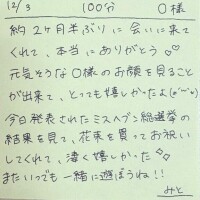 12/3 100分 O様
約2ヶ月半ぶりに会いに来て
くれて、本当にありがとう♡♡
元気そうなO様のお顔を見ること
が出来て、とっても嬉しかったよ(*^^*)
今日発表されたミスヘブン総選挙の
結果を見て、花束を買ってお祝い
してくれて、凄く嬉しかった♡♡
またいつでも一緒に遊ぼうね!!
みと